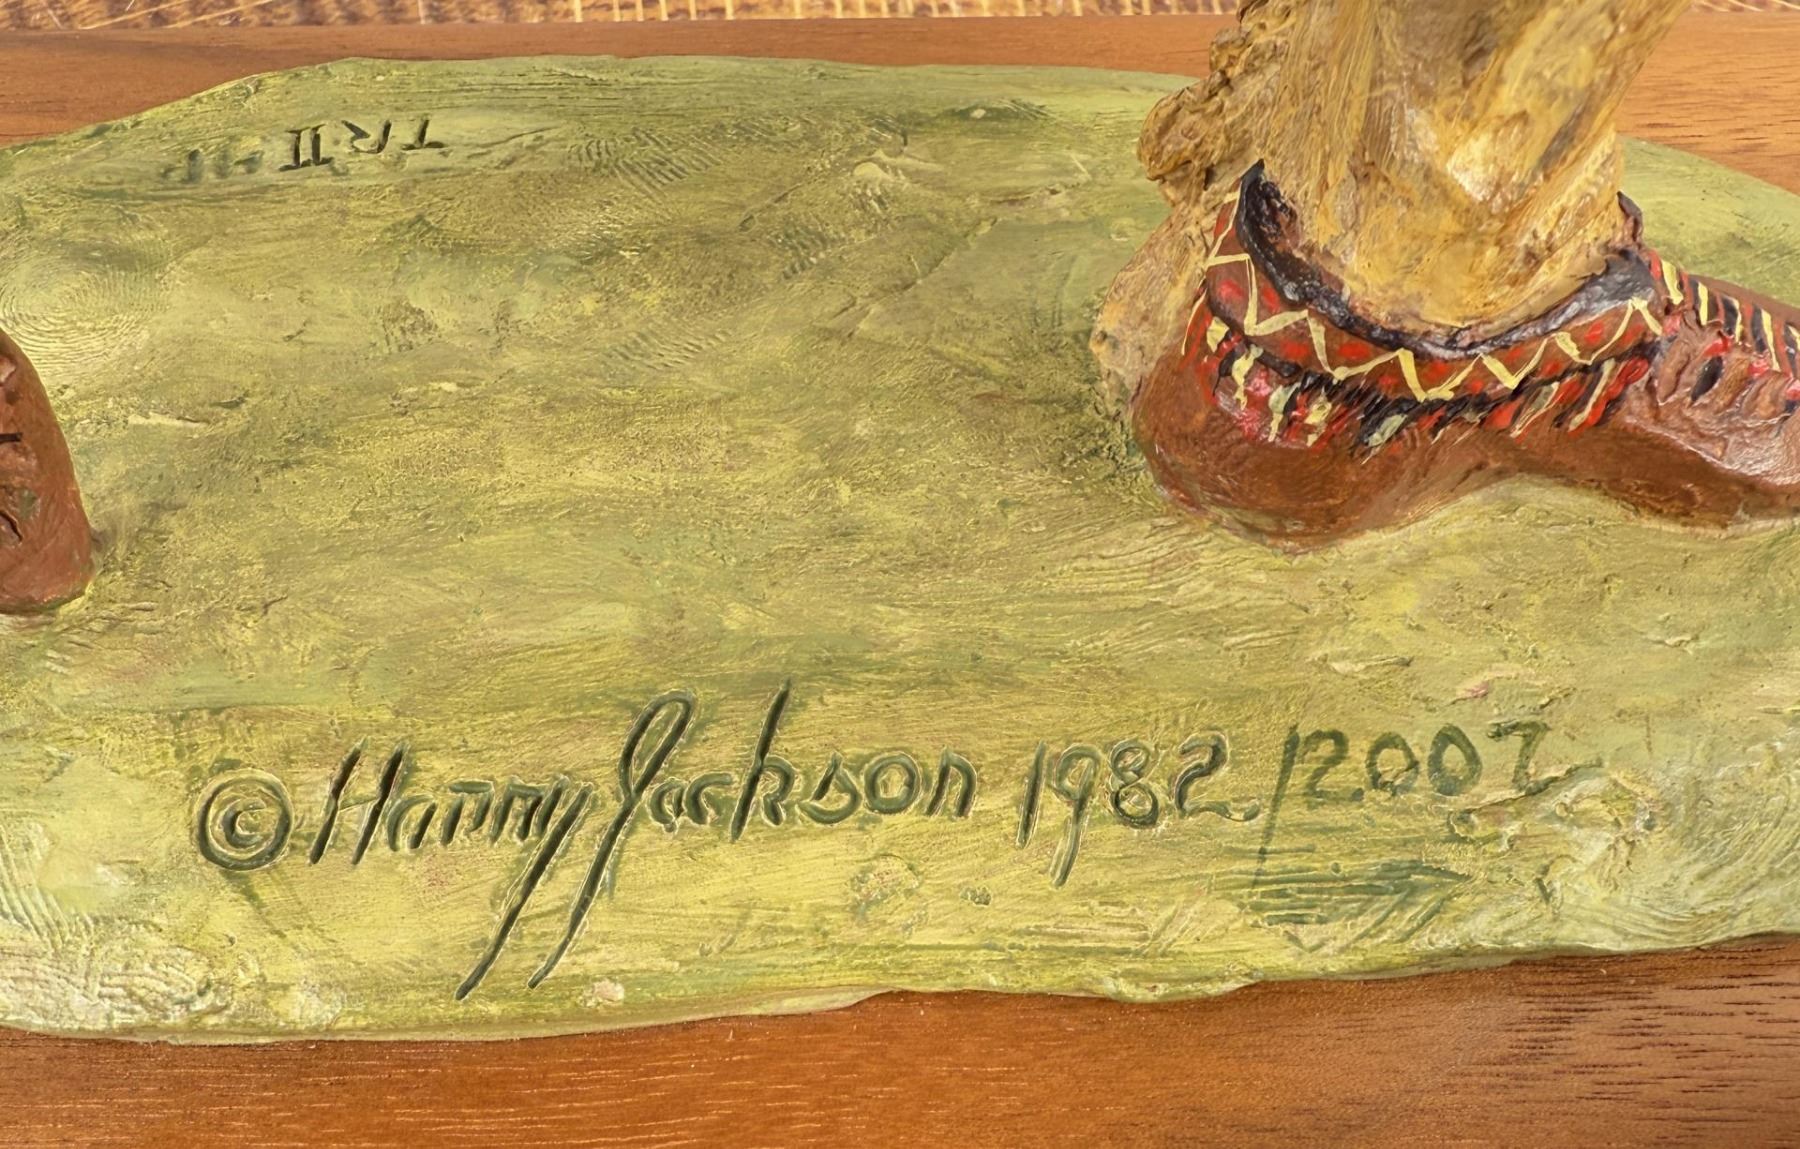 TR.II HP
© Harry Jackson 1982 / 2007